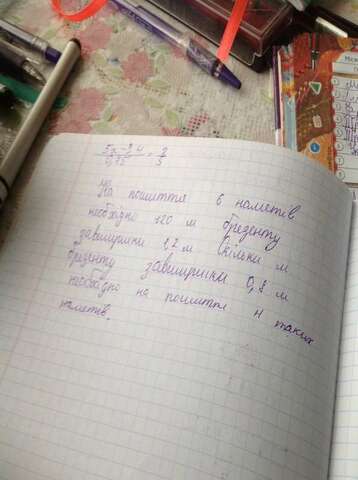 5x-3,4
0,75
=
2
3
На пошиття 6 наметів
необхідно 120 м брезенту
завширшки 1,2 м Скільки м
брезенту завширшки 0,8 м
необхідно на пошиття 4 таких
наметів.